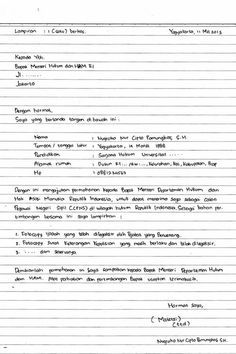 Lampiran : 1 (satu) berkas. Yogyakarta, 11 Mei 2013
Kepada Yth.
Bapak Menteri Hukum dan HAM RI
Jl. .......
Jakarta
Dengan hormat,
Saya yang bertanda tangan di bawah ini :
Nama : Nugroho Nur Cipto Pamungkas, S.H.
Tempat / tanggal lahir : Yogyakarta, 14 Maret 1990
Pendidikan : Sarjana Hukum Universitas ....
Alamat rumah : Dusun RT ... /RW ..., Kelurahan, Kec, Kabupaten, Prop
Hp :
Dengan ini mengajukan permohonan kepada Bapak Menteri Departemen Hukum dan
Hak Asasi Manusia Republik Indonesia, untuk dapat menerima saya sebagai Calon
Pegawai Negeri Sipil (CPNS) di wilayah hukum Republik Indonesia. Sebagai bahan per-
timbangan bersama ini saya lampirkan :
1. Fotocopy Ijazah yang telah dilegalisir oleh Pejabat yang berwenang.
2. Fotocopy Surat Keterangan Kepolisian yang masih berlaku dan telah dilegalisir.
3. .... dan seterusnya.
Demikianlah permohonan ini saya sampaikan kepada Bapak Menteri Departemen Hukum
dan HAM. Atas perhatian dan pertimbangan Bapak ucapkan terimakasih.
Hormat saya,
( Materai )
(ttd)
Nugroho Nur Cipto Pamungkas S.H.